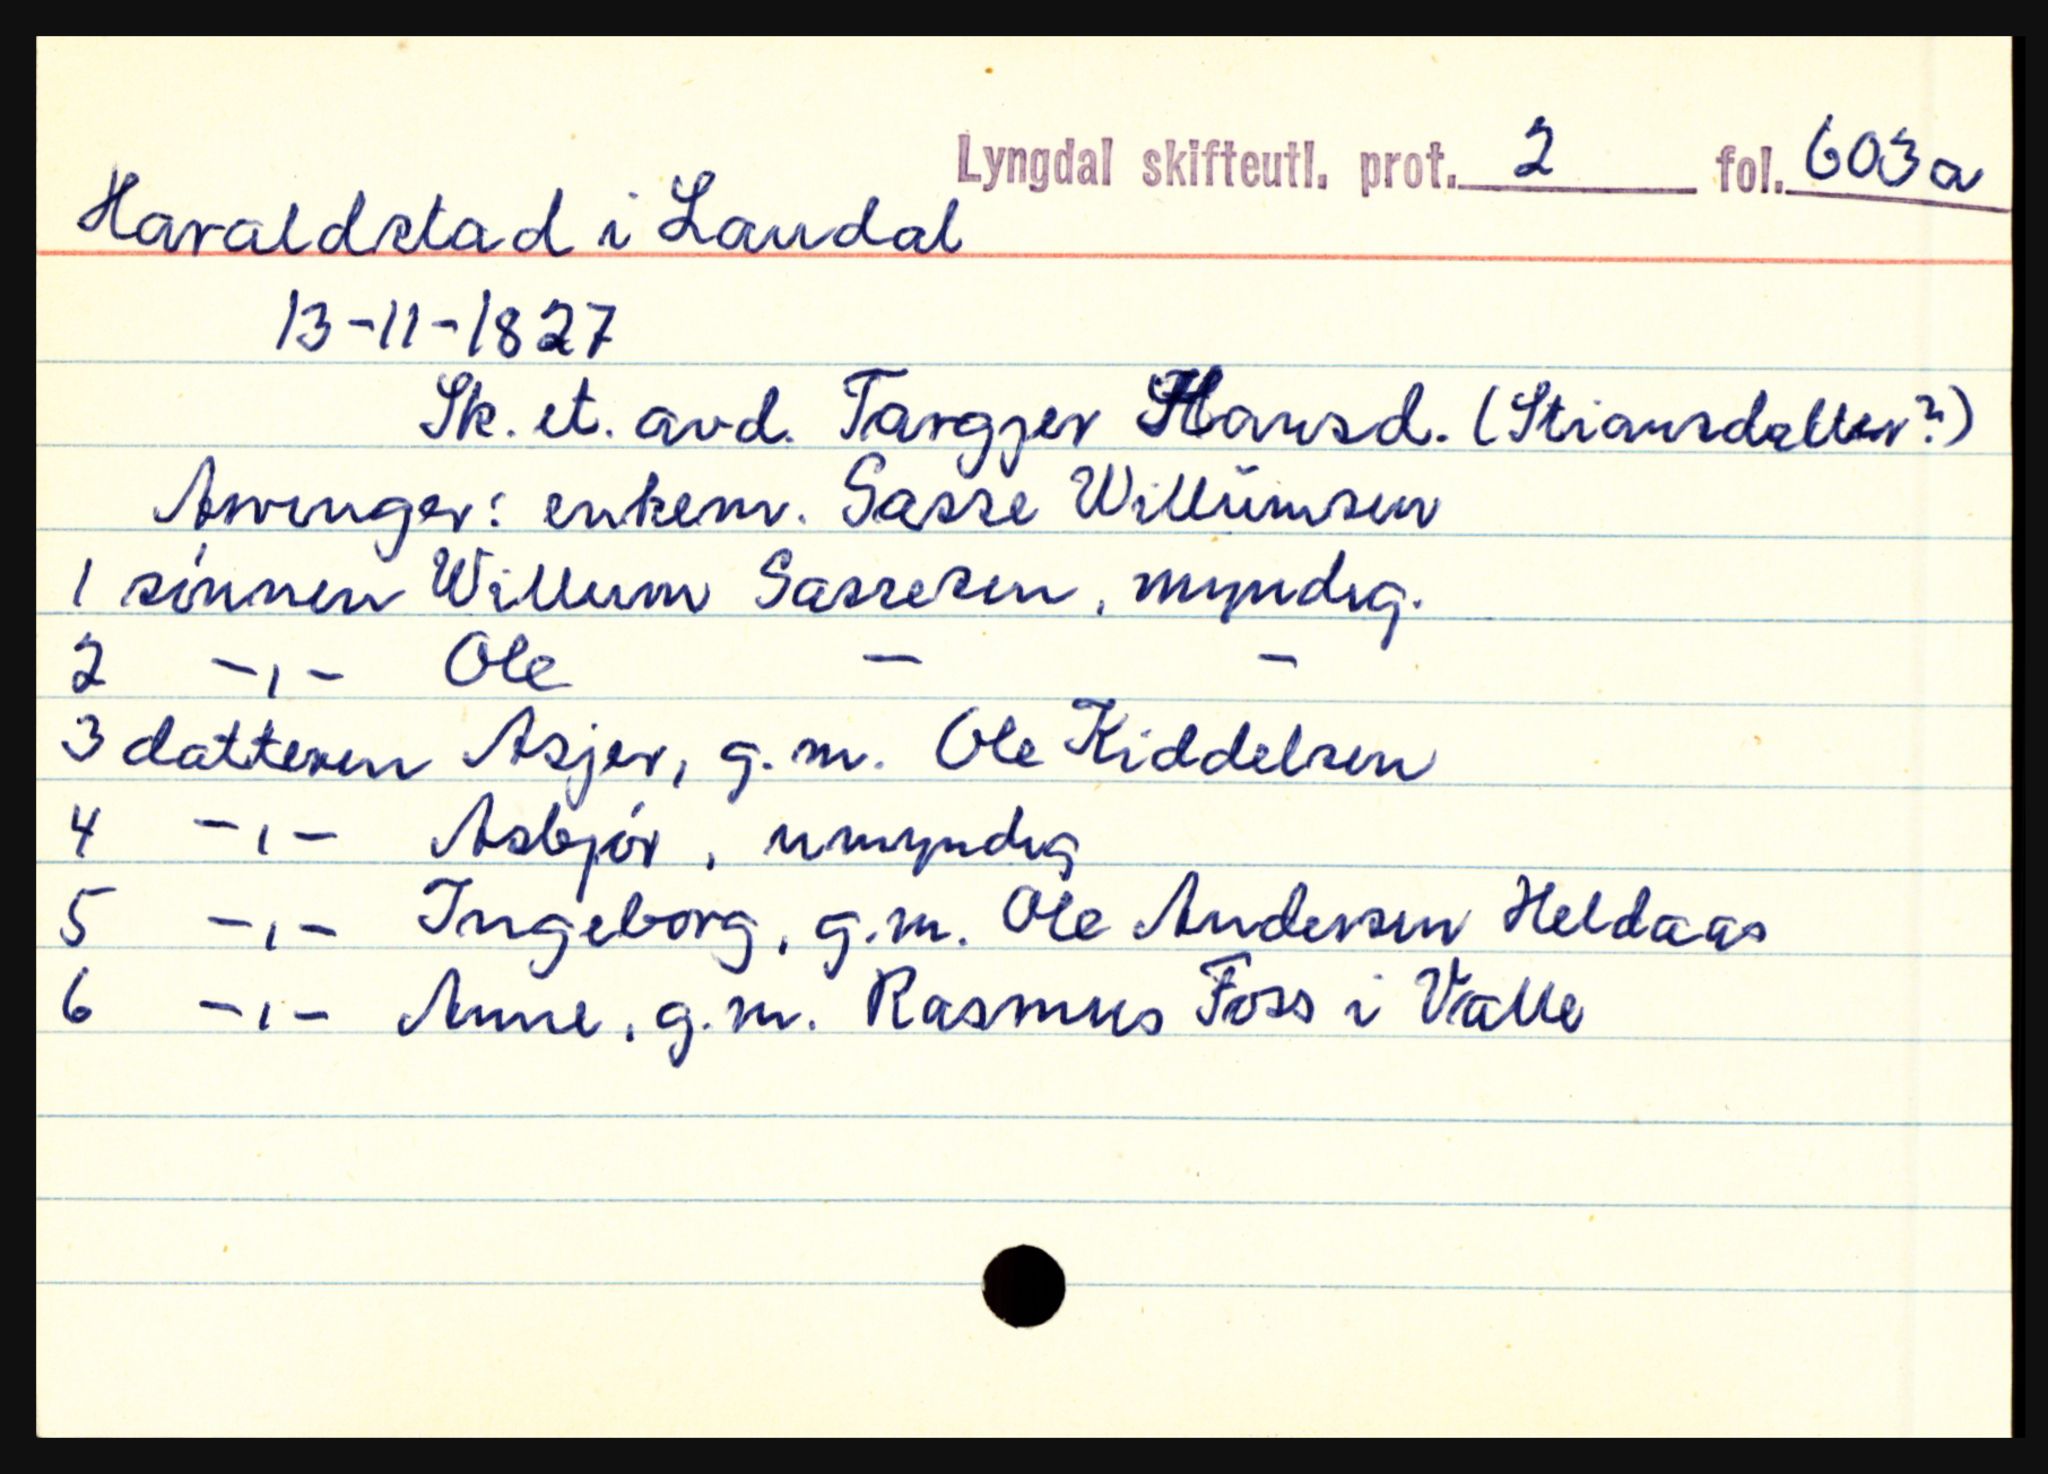 Lyngdal skifteutl. prot. 2 fol. 603a
Haraldstad i Laudal
13-11-1827
Sk. et. avd. Targjer Hansd. (Stiansdatter?)
Arvinger: enkem. Sasse Willümsen
1 sönnen Willum Sassesen, myndig.
2 -,- Ole - -
3 datteren Asjer, g.m. Ole Kiddelsen
4 -,- Asbjör, umyndig
5 -,- Ingeborg, g.m. Ole Andersen Heldaas
6 -,- Anne, g.m. Rasmus Foss i Valle